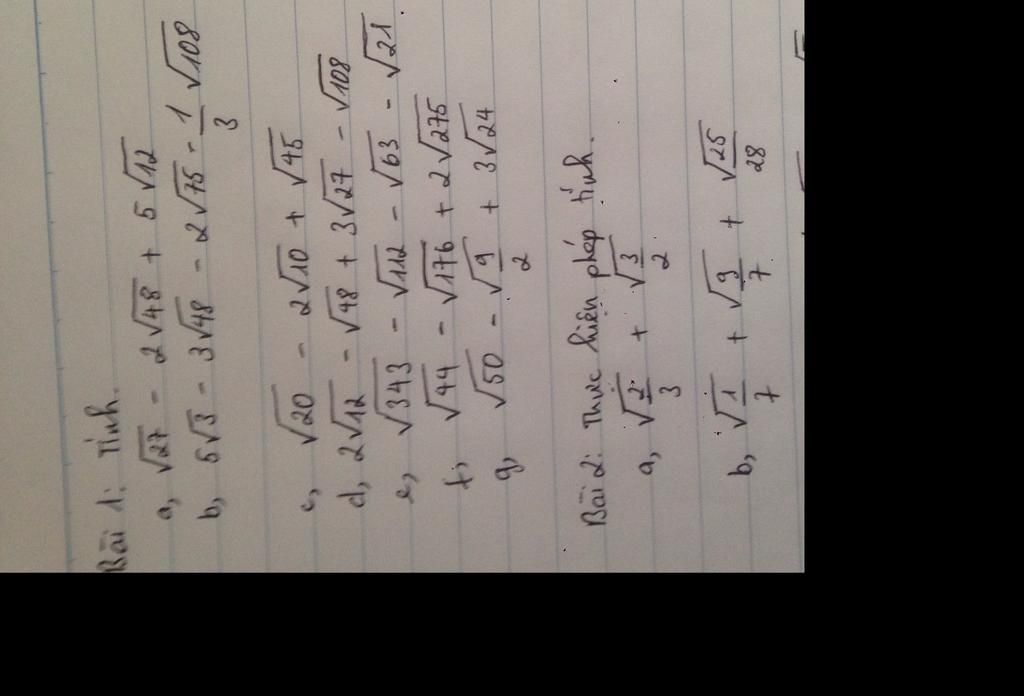 Bài 1: Tính.
a, √27 - 2√48 + 5√12
b, 5√3 - 3√48 - 2√75 - 1/3 √108
c, √20 - 2√10 + √45
d, 2√12 - √48 + 3√27 - √108
e, √343 - √112 - √63 - √21
f, √44 - √176 + 2√275
g, √50 - √9/2 + 3√24
Bài 2: Thực hiện phép tính.
a, √2/3 + √3/2
b, √1/7 + √9/7 + √25/28